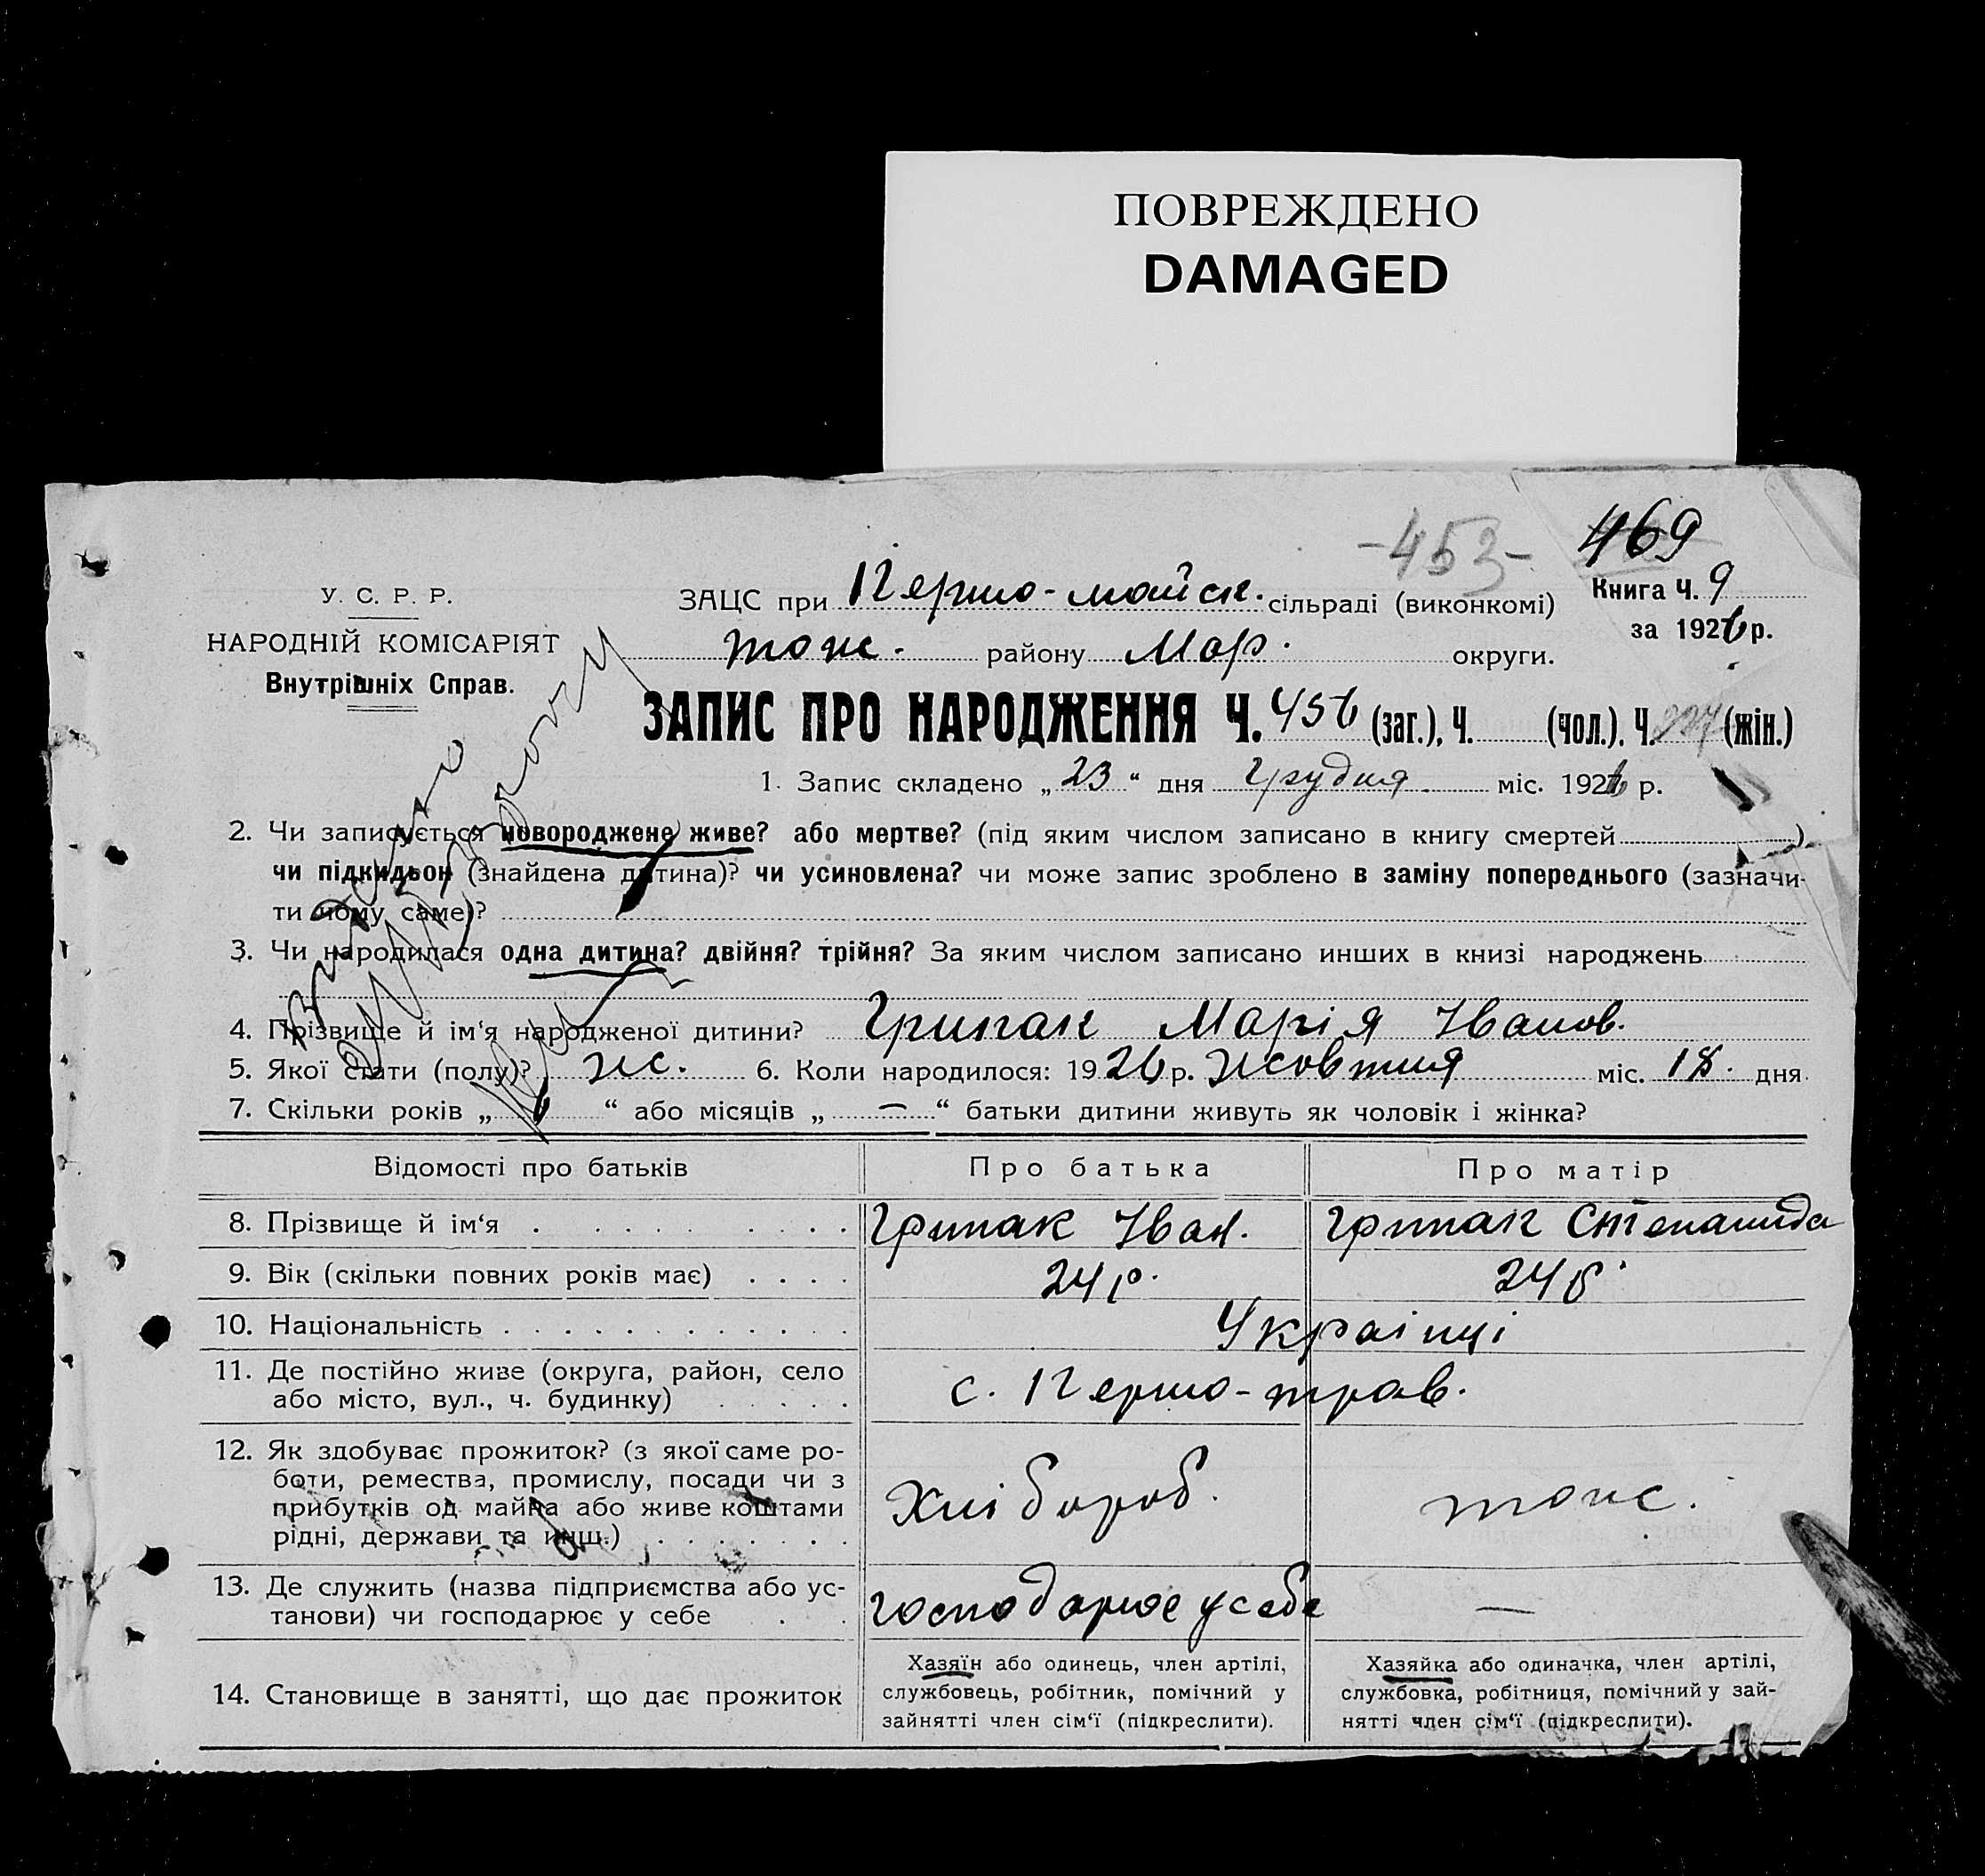 ПОВРЕЖДЕНО
DAMAGED
-453-
469
У. С. Р. Р.
НАРОДНІЙ КОМІСАРІЯТ
Внутрішніх Справ.
ЗАЦС при Першо-майск. сільраді (виконкомі)
тож. району Мар. округи.
Книга Ч. 9
за 1926 р.
ЗАПИС ПРО НАРОДЖЕННЯ Ч. 456 (заг.), Ч. (чол.). Ч. 227 (жін.)
1. Запис складено „ 23 “ дня Грудня міс. 1926 р.
2. Чи записується новороджене живе? або мертве? (під яким числом записано в книгу смертей )
чи підкидьон (знайдена дитина)? чи усиновлена? чи може запис зроблено в заміну попереднього (зазначи-
ти чому саме)?
3. Чи народилася одна дитина? двійня? трійня? За яким числом записано инших в книзі народжень
4. Прізвище й ім‘я народженої дитини? Грипак Марія Іванов.
5. Якої стати (полу)? ж. 6. Коли народилося: 1926 р. жовтня міс. 18. дня
7. Скільки років „ 6 “ або місяців „ — “ батьки дитини живуть як чоловік і жінка?
Відомості про батьків Про батька Про матір
8. Прізвище й ім‘я Грипак Іван. Грипак Степанида
9. Вік (скільки повних років має) 24 р. 24 р.
10. Національність Українці
11. Де постійно живе (округа, район, село
або місто, вул., ч. будинку) с. Першо-трав.
12. Як здобуває прожиток? (з якої саме ро-
боти, ремества, промислу, посади чи з
прибутків од майна або живе коштами
рідні, держави та инш.) Хлібороб. тож.
13. Де служить (назва підприємства або ус-
танови) чи господарює у себе господарює у себе —
14. Становище в занятті, що дає прожиток
Хазяїн або одинець, член артілі,
службовець, робітник, помічний у
зайнятті член сім‘ї (підкреслити).
Хазяйка або одиначка, член артілі,
службовка, робітниця, помічний у зай-
нятті член сім‘ї (підкреслити).